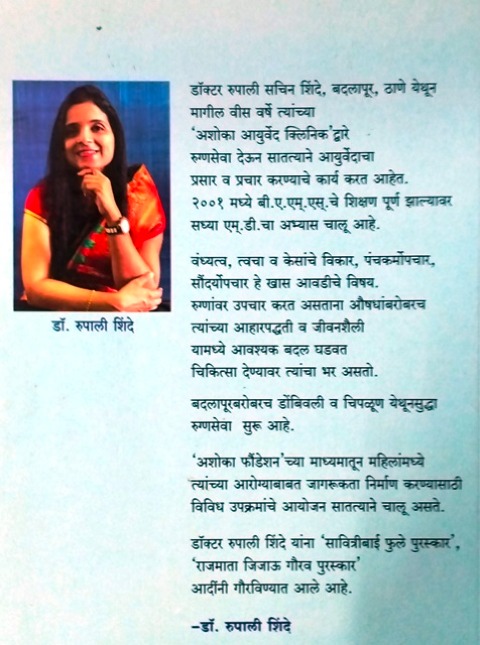 डॉक्टर रुपाली सचिन शिंदे, बदलापूर, ठाणे येथून
मागील वीस वर्षे त्यांच्या
'अशोका आयुर्वेद क्लिनिक'द्वारे
रुग्णसेवा देऊन सातत्याने आयुर्वेदाचा
प्रसार व प्रचार करण्याचे कार्य करत आहेत.
२००१ मध्ये बी.ए.एम्.एस्.चे शिक्षण पूर्ण झाल्यावर
सध्या एम्.डी.चा अभ्यास चालू आहे.
वंध्यत्व, त्वचा व केसांचे विकार, पंचकर्मोपचार,
सौंदर्योपचार हे खास आवडीचे विषय.
रुग्णांवर उपचार करत असताना औषधांबरोबरच
त्यांच्या आहारपद्धती व जीवनशैली
यामध्ये आवश्यक बदल घडवत
चिकित्सा देण्यावर त्यांचा भर असतो.
बदलापूरबरोबरच डोंबिवली व चिपळूण येथूनसुद्धा
रुग्णसेवा सुरू आहे.
'अशोका फौंडेशन'च्या माध्यमातून महिलांमध्ये
त्यांच्या आरोग्याबाबत जागरूकता निर्माण करण्यासाठी
विविध उपक्रमांचे आयोजन सातत्याने चालू असते.
डॉक्टर रुपाली शिंदे यांना 'सावित्रीबाई फुले पुरस्कार',
'राजमाता जिजाऊ गौरव पुरस्कार'
आदींनी गौरविण्यात आले आहे.
–डॉ. रुपाली शिंदे
डॉ. रुपाली शिंदे